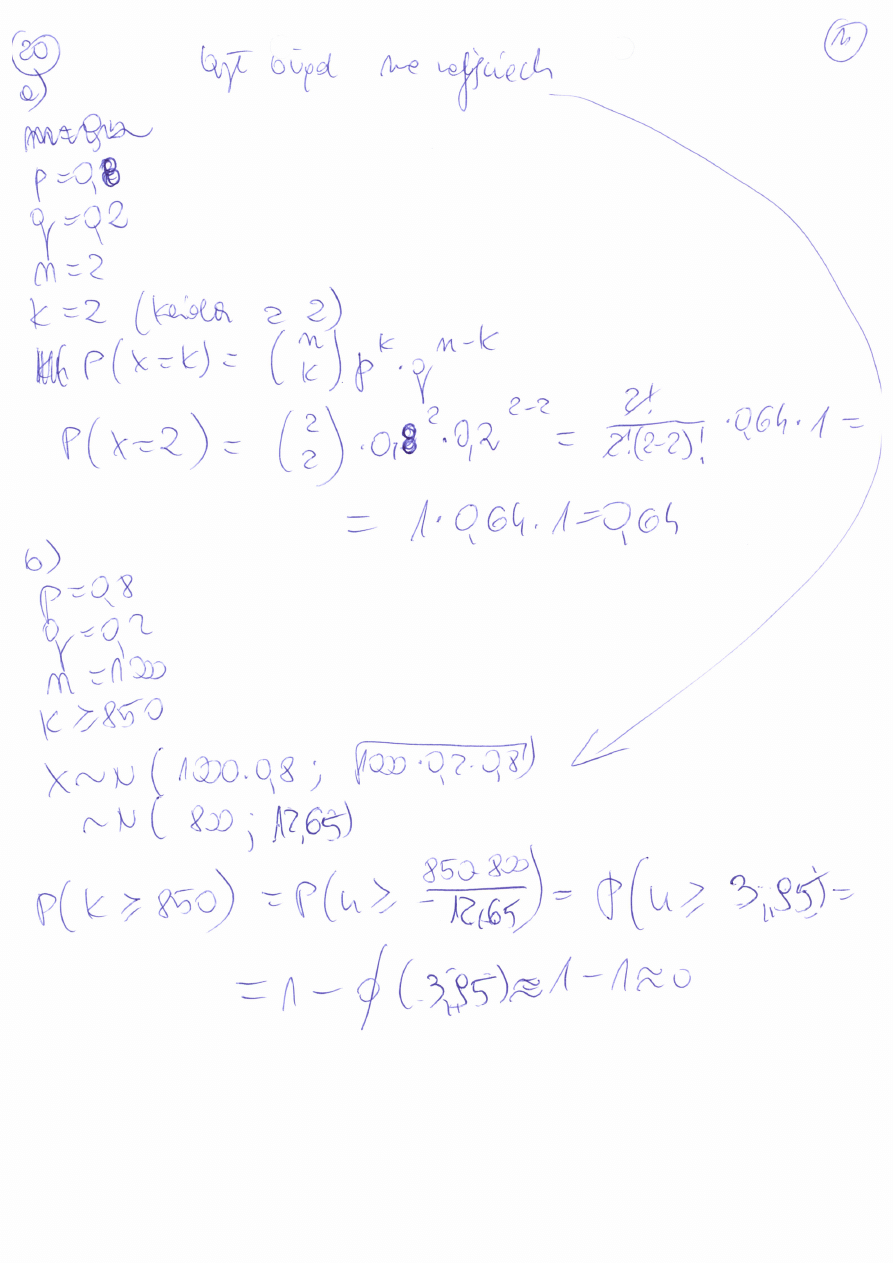 20
był błąd na zajęciach
a)
p=0,8
q=0,2
n=2
k=2 (każda z 2)
P(X=k) = (n k) p^k · q^(n-k)
P(X=2) = (2 2) · 0,8^2 · 0,2^(2-2) = 2!/(2!(2-2)!) · 0,64 · 1 =
= 1 · 0,64 · 1 = 0,64
b)
p=0,8
q=0,2
n=1000
k ≥ 850
X~N(1000·0,8; √(1000·0,2·0,8))
~N(800; 12,65)
P(k ≥ 850) = P(u ≥ (850-800)/12,65) = P(u ≥ 3,95) =
= 1 - ϕ(3,95) ≈ 1 - 1 ≈ 0